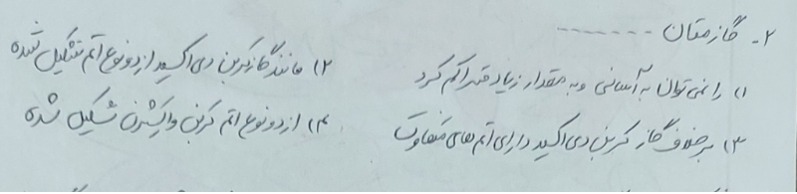 ۲- گاز متان .......
۱) را نمی توان به آسانی و به مقدار زیاد متراکم کرد
۲) مانند گاز کربن دی اکسید از دو نوع اتم تشکیل شده
۳) برخلاف گاز کربن دی اکسید دارای اتم های متفاوت
۴) از دو نوع اتم کربن و اکسیژن تشکیل شده